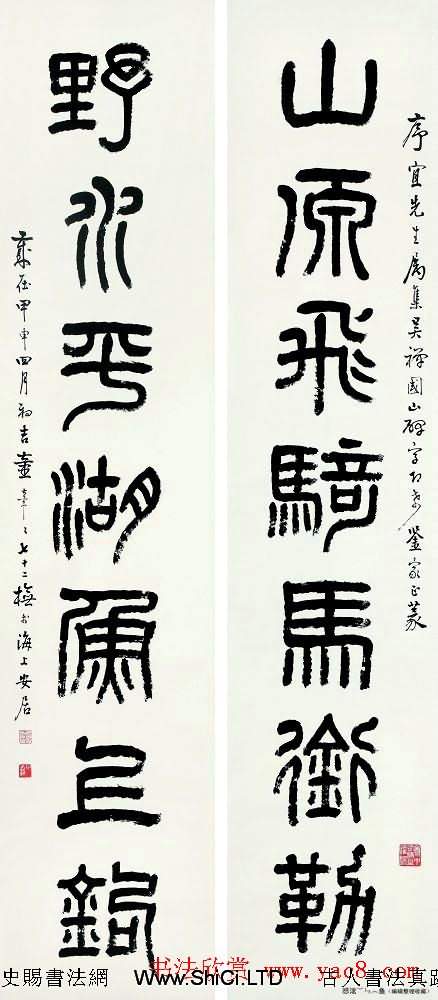 山原飛騎馬銜勒
序宜先生属集吳禪國山碑字即希鑒家正篆
野水平湖魚上鉤
歲在甲申四月初吉童年〻七十二橅於海上安居
书法欣赏 www.yac8.com
史賜書法網 www.ShiCi.LTD 古人書法真跡